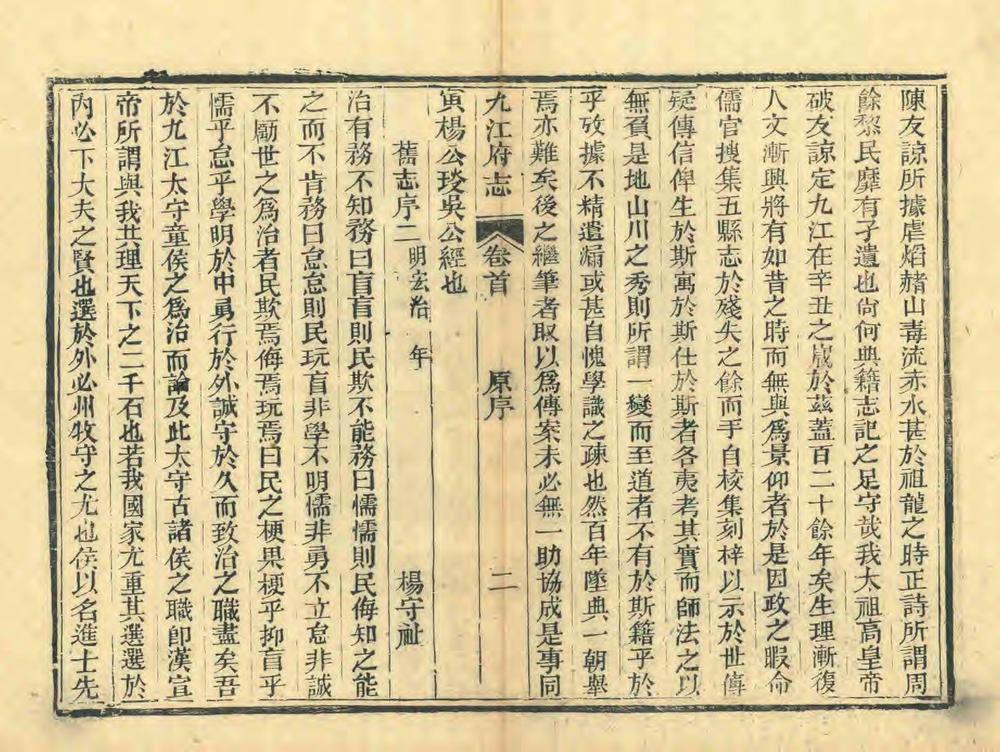 陳友諒所據虐焰赭山毒流赤水甚於祖龍之時正詩所謂周
餘黎民靡有孑遺也尙何典籍志記之足守哉我太祖高皇帝
破友諒定九江在辛丑之歲於茲蓋百二十餘年矣生理漸復
人文漸興將有如昔之時而無與爲景仰者於是因政之暇命
儒官搜集五縣志於殘失之餘而手自校集刻梓以示於世傳
疑傳信俾生於斯寓於斯仕於斯者各夷考其實而師法之以
無負是地山川之秀則所謂一變而至道者不有於斯籍乎於
乎攷據不精遺漏或甚自愧學識之疎也然百年墜典一朝舉
焉亦難矣後之繼筆者取以爲傳案未必無一助協成是事同
寅楊公琰吳公經也
九江府志 卷首 原序 二
舊志序二 明宏治 年 楊守阯
治有務不知務曰盲盲則民欺不能務曰懦懦則民侮知之能
之而不肯務曰怠怠則民玩盲非學不明懦非勇不立怠非誠
不勵世之爲治者民欺焉侮焉玩焉曰民之梗果梗乎抑盲乎
懦乎怠乎學明於中勇行於外誠守於久而致治之職盡矣吾
於九江太守童侯之爲治而論及此太守古諸侯之職卽漢宣
帝所謂與我共理天下之二千石也若我國家尤重其選選於
內必下大夫之賢也選於外必州牧守之尤也侯以名進士先